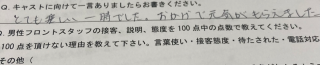 Q. キャストに向けて一言ありましたらお書きください。
とても楽しい一時でした。おかげで元気がもらえました
Q. 男性フロントスタッフの接客、説明、態度を100点中の点数で教えてください。
100点を頂けない理由を教えて下さい。言葉使い・接客態度・待たされた・電話対応
その他(